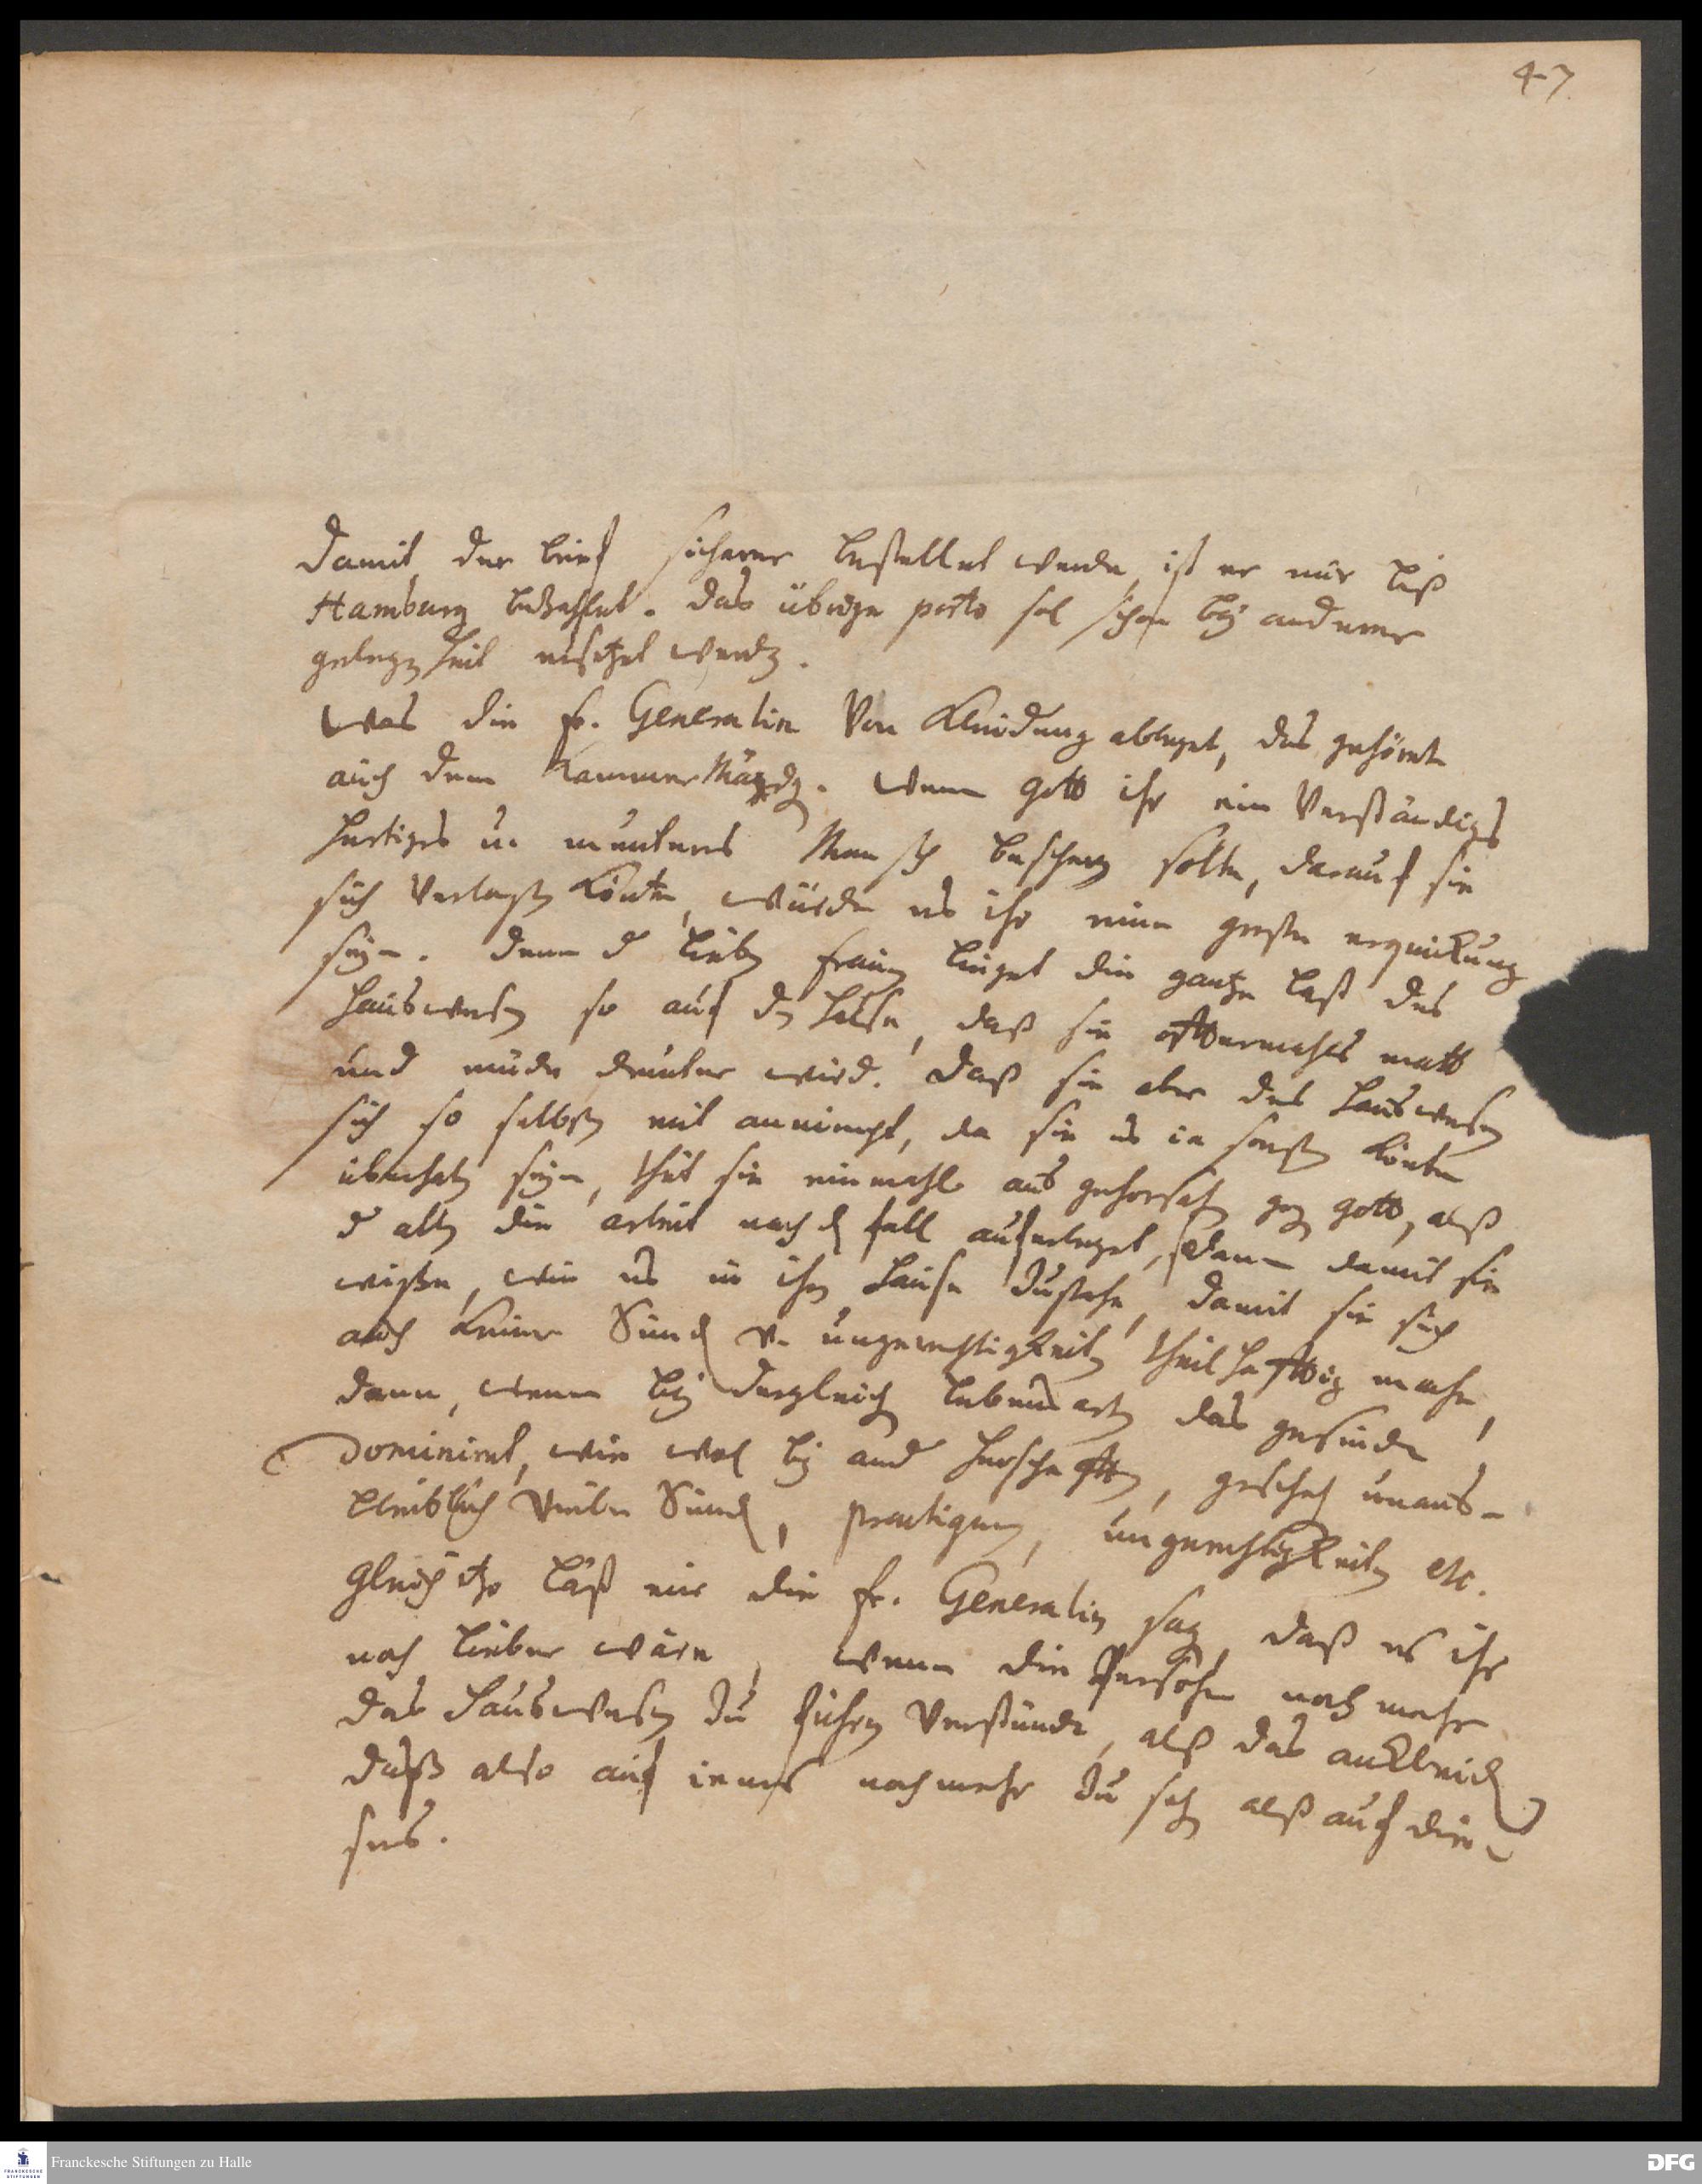 47.
Damit der brief sicherer bestellet werde, ist er nur biß
Hamburg bezahlet. das übrige porto sol schon bey anderer
gelegenheit ersetzet werden.
Was die fr. Generalin Von Kleidung ableget, das gehöret
auch dem KammerMägdg. Wenn gott ihr ein Verständiges
hurtiges u. munteres Mensch bescheren solte, darauf sie
sich Verlaßen könte, würde es ihr eine große erquickung
seyn. denn d lieben frauen lieget die gantze last des
hauswesen so auf dem halse, daß sie offtermahls matt
und müde drüber wird. Daß sie aber des hauswesen
sich so selbsten mit annimpt, da sie es ja sonsten könte
überhaben seyn, thut sie einmahl aus gehorsam gegen gott, alß
d allen die arbeit nach dem fall auferleget, dann damit sie
wiße, wie es in ihrem hause zustehe, damit sie sich
auch keiner Sünden u. ungerechtigkeiten theilhafftig mache,
dann, wenn bey dergleichen lebensarten das gesinde
dominiret, wie wol bey andern herschafften, geschehen unaus-
bleiblich Viele Sünden, ungerechtigkeiten etc.
Gleich itzo läß mir die fr. Generalin sagen, daß es ihr
noch lieber wäre, wenn die Persohn noch mehr
das hauswesen zu führen Verstünde, alß das ankleiden
daß also auf jenes noch mehr zu sehen alß auf die-
ses.
Franckesche Stiftungen zu Halle
DFG